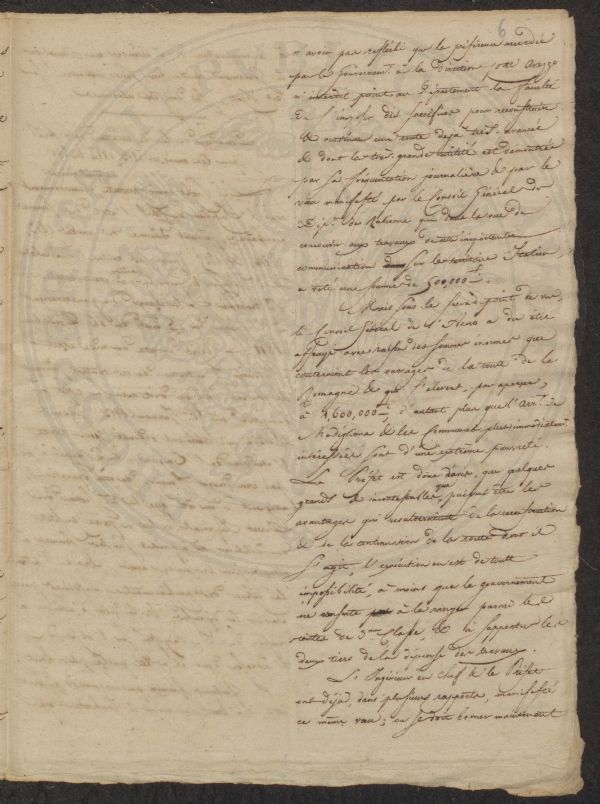 6
n'avoir pas réfléchi que la préférence accordée
par le Gouvernemt. à la direction par Arezzo
n'interdit point au Département la faculté
de s'imposer des sacrifices pour reconstruire
& continuer une route déjà très avancée
& dont la très grande utilité est démontrée
par sa fréquentation journalière & par le
vœu manifesté par le Conseil Général du
Dépt. du Rubicone qui dans la vue de
concourir aux travaux de
communication sur le territoire Italien
a voté une somme de 500,000 f.
Mais sous le second point de vue,
le Conseil Général de l'Arno a du être
effrayé avec raison des sommes énormes que
couteraient les ouvrages de la route de la
Romagne & qui s'élevent, par apperçu,
à 1,600,000 f, d'autant plus que l'arrt. de
Modigliana & les Communes plus immédiatemt.
intéressées sont d'une extrême pauvreté.
Le Préfet est donc d'avis, que quelques
grands & incontestables que puissent être les
avantages qui resulteraient de la construction
& de la continuation de la route dont il
s'agit, l'exécution en est de toute
impossibilité, à moins que le gouvernement
ne consente à la ranger parmi les
routes de 3me Classe, & à supporter les
deux tiers de la dépense des travaux.
L'Ingénieur en Chef & le Préfet
ont déjà, dans plusieurs rapports, manifesté
ce même vœu; je dois borner maintenant